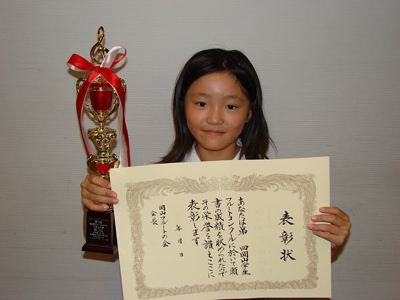 表彰状
あなたは第 四回岡山学生
フルートコンクールに於いて頭
書の成績を収められたので
その栄誉を讃えここに
表彰します
年 月 日
岡山フルートの会
会長